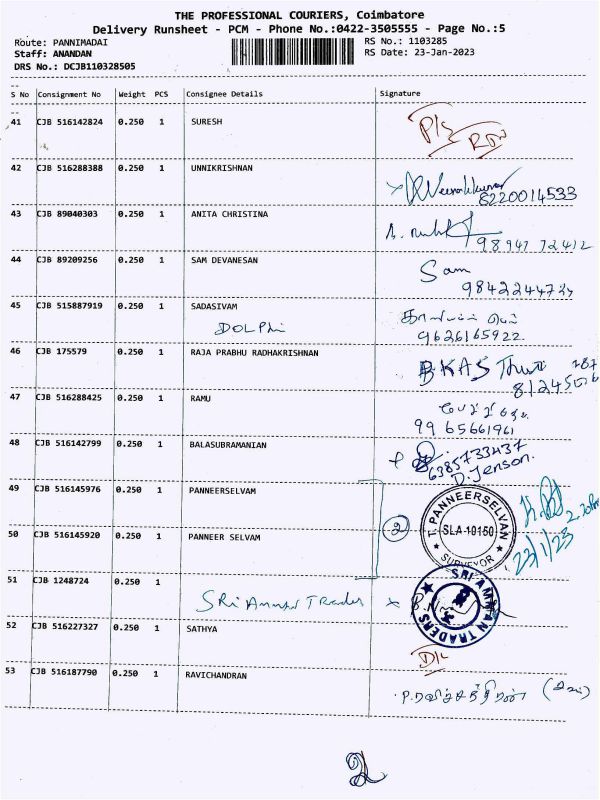 THE PROFESSIONAL COURIERS, Coimbatore
Delivery Runsheet - PCM - Phone No.:0422-3505555 - Page No.:5
Route: PANNIMADAI
RS No.: 1103285
Staff: ANANDAN
RS Date: 23-Jan-2023
DRS No.: DCJB110328505
S No Consignment No Weight PCS Consignee Details Signature
41 CJB 516142824 0.250 1 SURESH
42 CJB 516288388 0.250 1 UNNIKRISHNAN
8220014533
43 CJB 89040303 0.250 1 ANITA CHRISTINA
98941 72412
44 CJB 89209256 0.250 1 SAM DEVANESAN Sam
9842244734
45 CJB 515887919 0.250 1 SADASIVAM
DOLPhi
9626165922
46 CJB 175579 0.250 1 RAJA PRABHU RADHAKRISHNAN
KAS
47 CJB 516288425 0.250 1 RAMU
9965661961
48 CJB 516142799 0.250 1 BALASUBRAMANIAN
6385733437
D.Jenson.
49 CJB 516145976 0.250 1 PANNEERSELVAM
2
T. PANNEERSELVAN
SLA-10150
SURVEYOR
23/1/23
50 CJB 516145920 0.250 1 PANNEER SELVAM
51 CJB 1248724 0.250 1
SRi Amman Traders
SRI AMMAN TRADERS
52 CJB 516227327 0.250 1 SATHYA
D/L
53 CJB 516187790 0.250 1 RAVICHANDRAN
ப.ரவிச்சந்திரன்
2